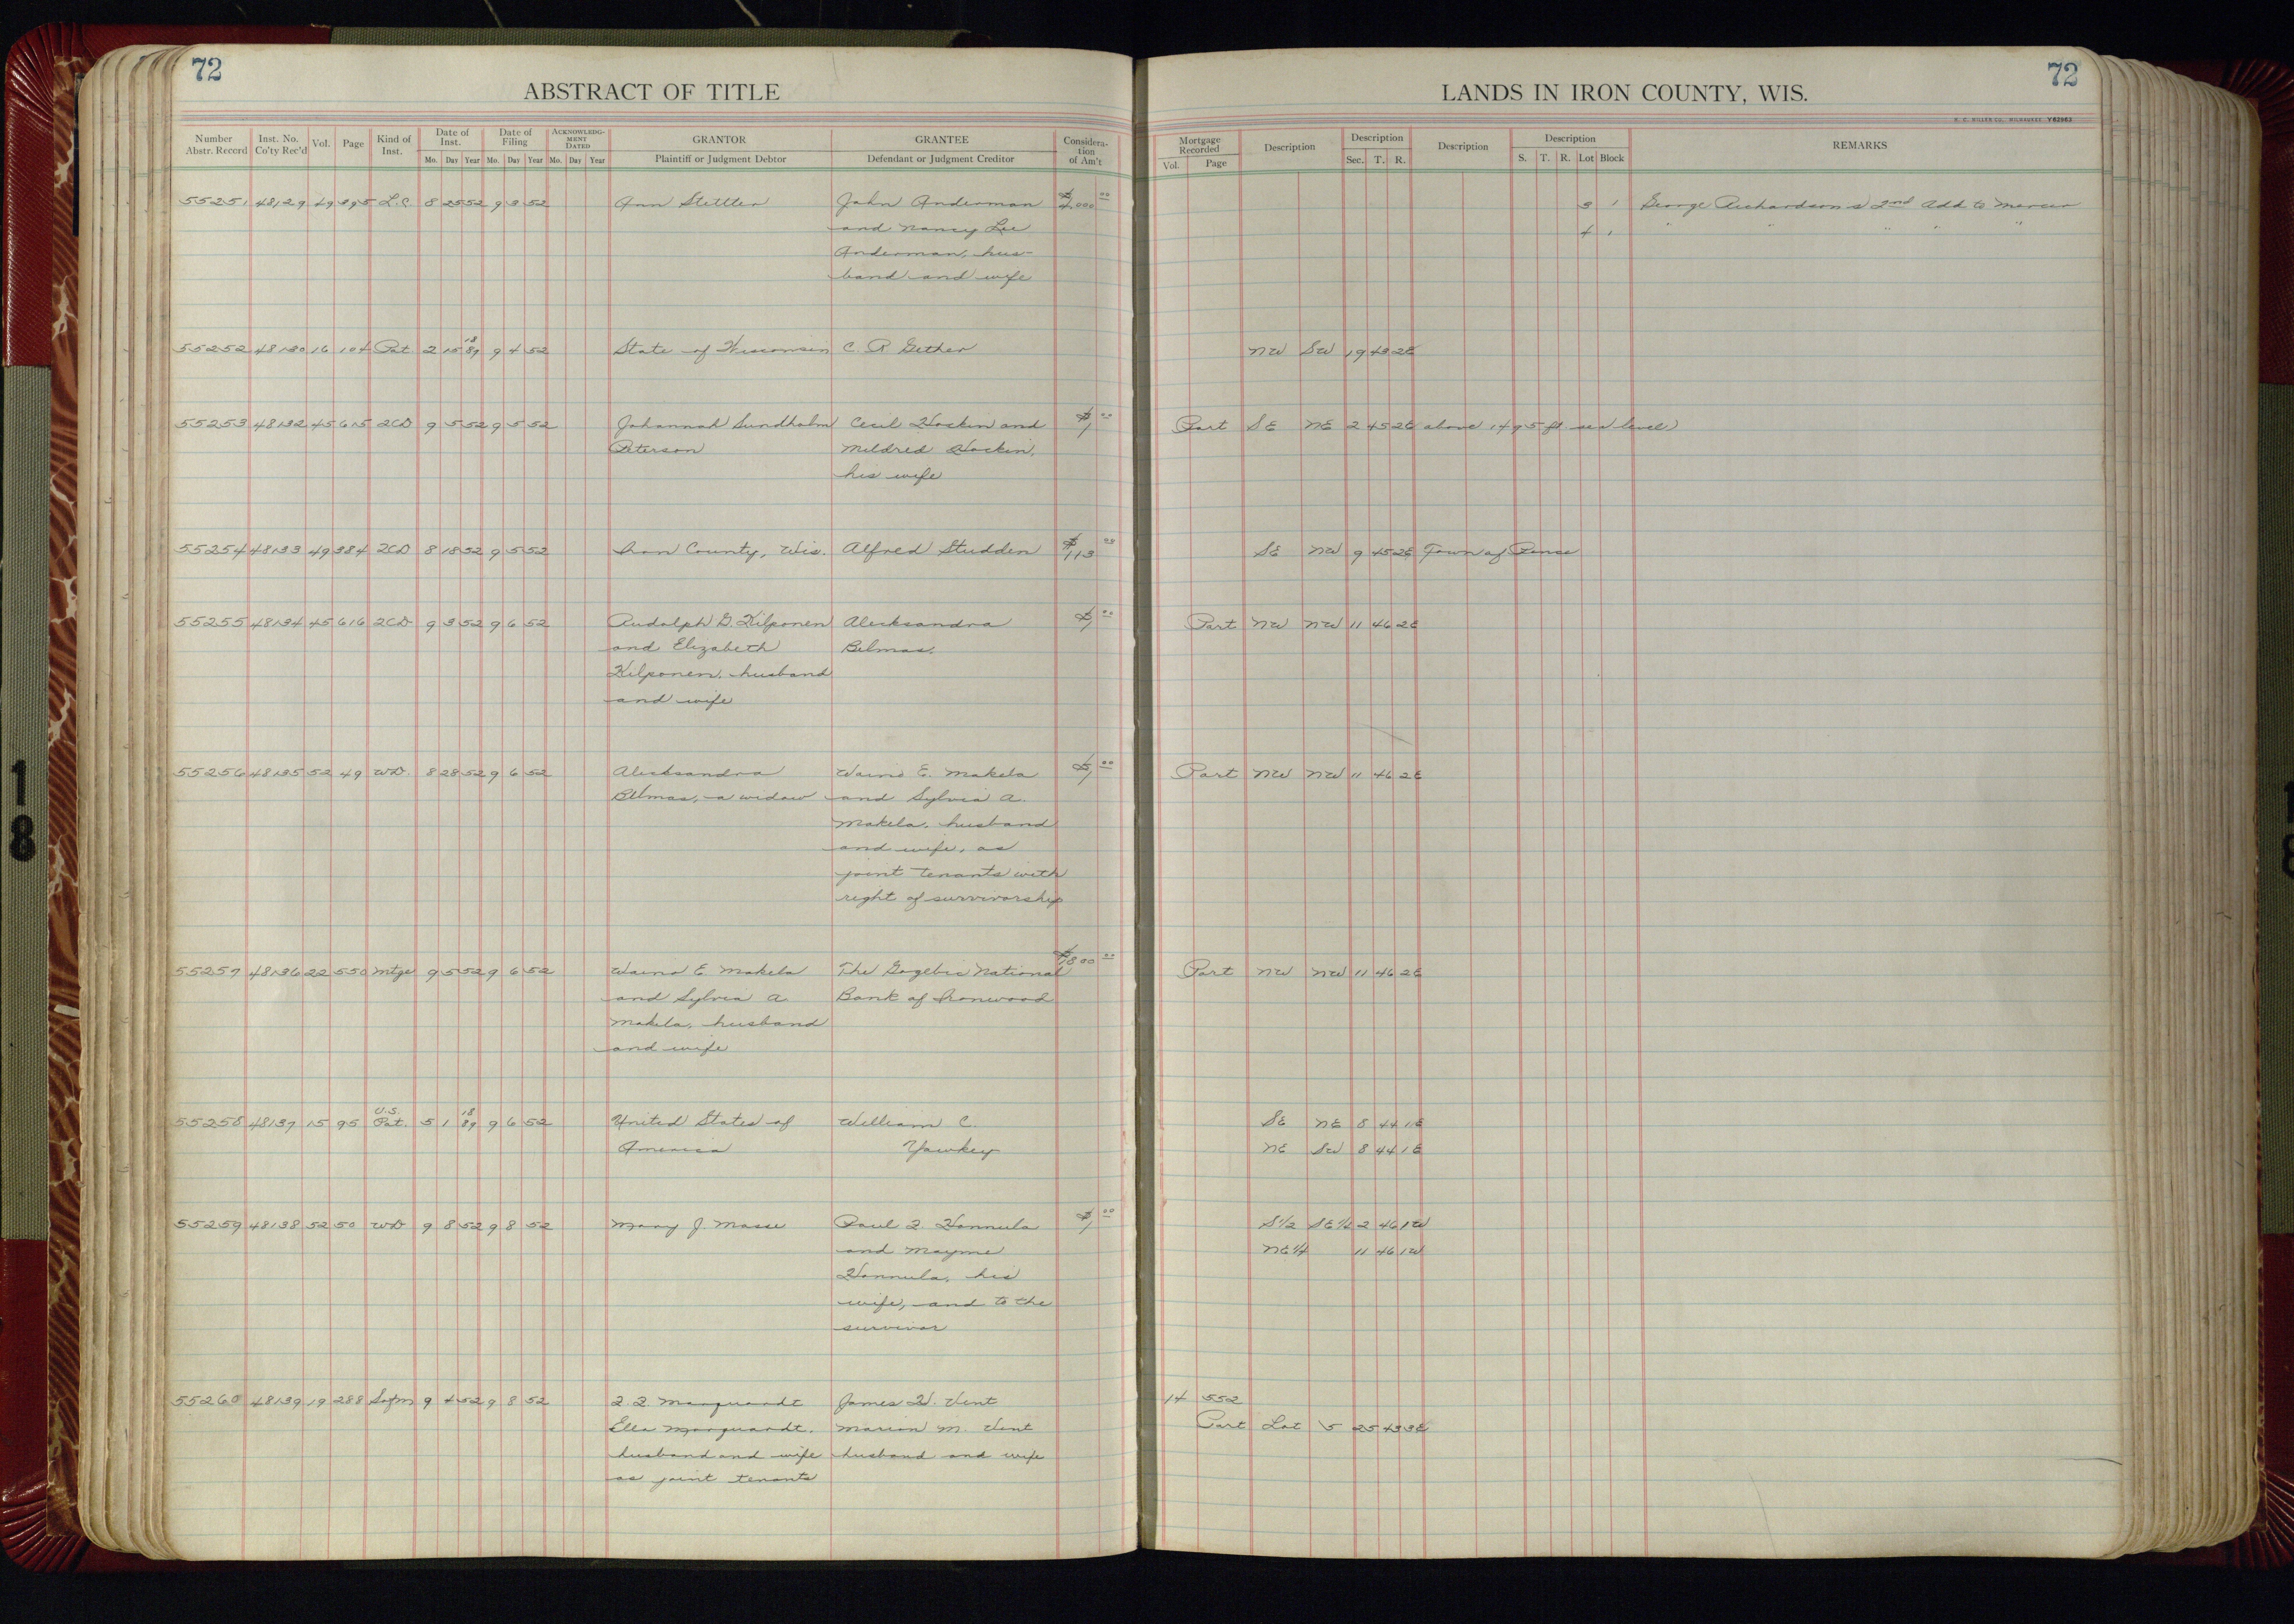 72
ABSTRACT OF TITLE
Number Abstr. Record Inst. No. Co'ty Rec'd Vol. Page Kind of Inst. Date of Inst. Mo. Day Year Date of Filing Mo. Day Year ACKNOWLEDGMENT DATED Mo. Day Year GRANTOR Plaintiff or Judgment Debtor GRANTEE Defendant or Judgment Creditor Consideration of Am't
55251 48129 49 395 L.C. 8 25 52 9 3 52 Ann Stettler John Anderman $4,000 00
and Nancy Lee
Anderman, hus-
band and wife
55252 48130 16 104 Pat 2 15 1889 9 4 52 State of Wisconsin C. R. Gether
55253 48132 45 615 2CD 9 5 52 9 5 52 Johannah Sundholm Cecil Hockin and $1 00
Peterson Mildred Hockin,
his wife
55254 48133 49 384 2CD 8 18 52 9 5 52 Iron County, Wis. Alfred Studden $113
55255 48134 45 616 2CD 9 3 52 9 6 52 Rudolph G. Kilponen Alecksandra $1 00
and Elizabeth Belmas,
Kilponen, husband
and wife
55256 48135 52 49 WD. 8 28 52 9 6 52 Alecksandra Waino E. Makela $1 00
Belmas, a widow and Sylvia A.
Makela, husband
and wife, as
joint tenants with
right of survivorship
55257 48136 22 550 Mtge 9 5 52 9 6 52 Waino E. Makela The Gogebic National $1800 00
and Sylvia A. Bank of Ironwood
Makela, husband
and wife
55258 48137 15 95 U.S. Pat. 5 1 1889 9 6 52 United States of William C.
America Yawkey
55259 48138 52 50 WD 9 8 52 9 8 52 Mary J. Masse Paul I. Hannula $1 00
and Mayme
Hannula, his
wife, and to the
survivor
55260 48139 19 288 9 4 52 9 8 52 Marquardt James W. Vent
Ella Marquardt, Marion M. Vent
husband and wife husband and wife
as joint tenants
72
LANDS IN IRON COUNTY, WIS.
H. C. MILLER CO., MILWAUKEE Y62963
Mortgage Recorded Vol. Page Description Description Sec. T. R. Description Description S. T. R. Lot Block REMARKS
3 1 George Richardson's 2nd Add to Mercer
4 1 " " " " "
NW SW 19 43 2E
Part SE NE 2 45 2E above 1495 ft. sea level)
SE NW 9 45 2E Town of Pence
Part NW NW 11 46 2E
Part NW NW 11 46 2E
Part NW NW 11 46 2E
SE NE 8 44 1E
NE SW 8 44 1E
S1/2 SE1/4 2 46 1W
NE1/4 11 46 1W
14 552
Part Lot 5 25 43 3E
18